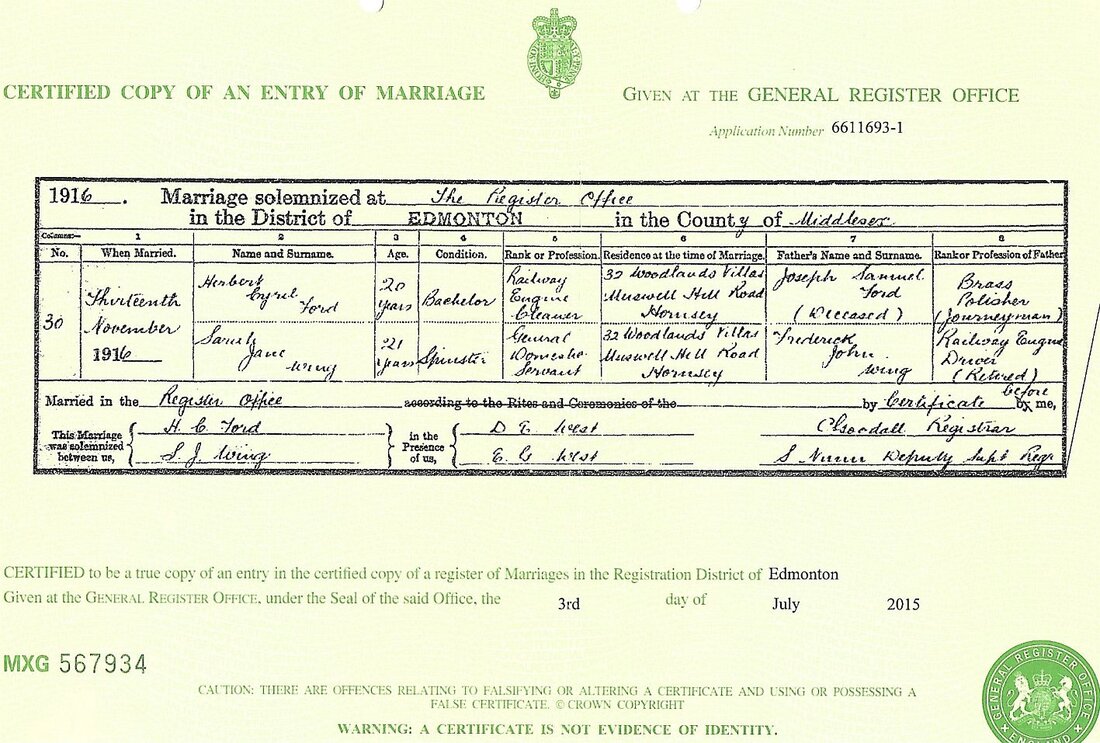 CERTIFIED COPY OF AN ENTRY OF MARRIAGE
GIVEN AT THE GENERAL REGISTER OFFICE
Application Number 6611693-1
1916. Marriage solemnized at The Register Office
in the District of EDMONTON in the County of Middlesex
Columns:— 1 2 3 4 5 6 7 8
No. When Married. Name and Surname. Age. Condition. Rank or Profession. Residence at the time of Marriage. Father's Name and Surname. Rank or Profession of Father
30
Thirteenth
November
1916
Herbert
Cyril
Ford
20
years
Bachelor
Railway
Engine
Cleaner
32 Woodlands Villas
Muswell Hill Road
Hornsey
Joseph Samuel
Ford
(Deceased)
Brass
Polisher
(Journeyman)
Sarah
Jane
Wing
21
years
Spinster
General
Domestic
Servant
32 Woodlands Villas
Muswell Hill Road
Hornsey
Frederick
John
Wing
Railway Engine
Driver
(Retired)
Married in the Register Office according to the Rites and Ceremonies of the by Certificate before by me,
This Marriage was solemnized between us,
H. C. Ford
S. J. Wing
in the Presence of us,
D E West
E G West
Registrar
S Nunn Deputy Supt Regr
CERTIFIED to be a true copy of an entry in the certified copy of a register of Marriages in the Registration District of Edmonton
Given at the GENERAL REGISTER OFFICE, under the Seal of the said Office, the 3rd day of July 2015
MXG 567934
CAUTION: THERE ARE OFFENCES RELATING TO FALSIFYING OR ALTERING A CERTIFICATE AND USING OR POSSESSING A
FALSE CERTIFICATE. © CROWN COPYRIGHT
WARNING: A CERTIFICATE IS NOT EVIDENCE OF IDENTITY.
GENERAL REGISTER OFFICE
ENGLAND